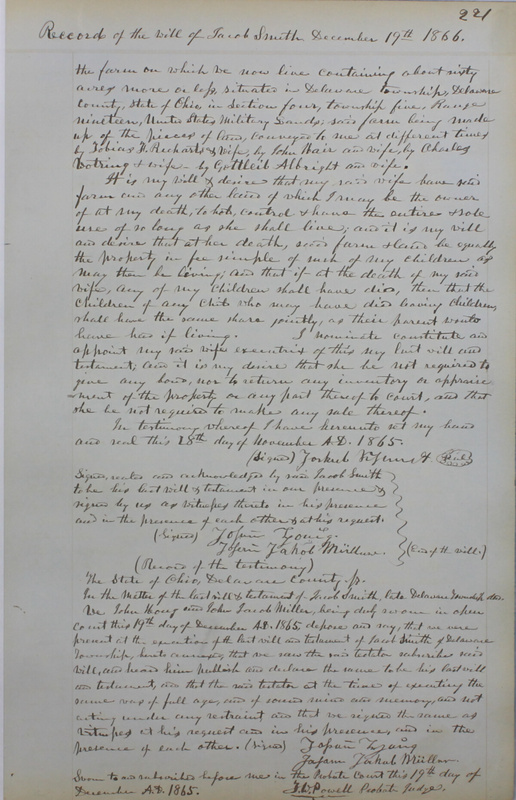 221
Record of the will of Jacob Smith December 19th 1866.
the farm on which we now live containing about sixty
acres more or less, situated in Delaware Township, Delaware
County, State of Ohio, in Section four, township five, Range
nineteen, United States Military Lands; said farm being made
up of the pieces of land, conveyed to me at different times
by Tobias H. Richards & wife, by John Hair and wife, by Charles
Wotring & wife - by Gottleib Albright and wife.
It is my will & desire that my said wife have said
farm and any other land of which I may be the owner
of at my death, to hold, control & have the entire & sole
use of so long as she shall live; and it is my will
and desire that at her death, said farm & land be equally
the property in fee simple of such of my children as
may then be living; and that if at the death of my said
wife, any of my children shall have died, then that the
Children of any Child who may have died leaving Children,
shall have the same share jointly, as their parent would
have had if living. I nominate constitute and
appoint my said wife executrix of this my last will and
testament; and it is my desire that she be not required to
give any bond, nor to return any inventory or appraise-
ment of the property or any part thereof to court, and that
she be not required to make any sale thereof.
In testimony whereof I have hereunto set my hand
and seal this 28th day of November A.D. 1865.
(Signed) Seal
Signed, sealed and acknowledged by said Jacob Smith
to be his last will & testament in our presence &
signed by us as witnesses thereto in his presence
and in the presence of each other & at his request.
(Signed)
Jakob Müller (End of the will.)
(Record of the testimony)
The State of Ohio, Delaware County, ss.
In the Matter of the last will & testament of Jacob Smith, late Delaware Township, decd.
We John Houg and John Jacob Miller, being duly sworn in open
Court this 19th day of December A.D. 1865, depose and say, that we were
present at the execution of the last will and testament of Jacob Smith of Delaware
Township, hereto annexed, that we saw the said testator subscribe said
will, and heard him publish and declare the same to be his last will
and testament, and that the said testator at the time of executing the
same was of full age, and of sound mind and memory, and not
acting under any restraint and that we signed the same as
witnesses at his request and in his presence, and in the
presence of each other. (Signed)
Jakob Müller
Sworn to and subscribed before me in the Probate Court this 19th day of
December A.D. 1865. Powell Probate Judge.